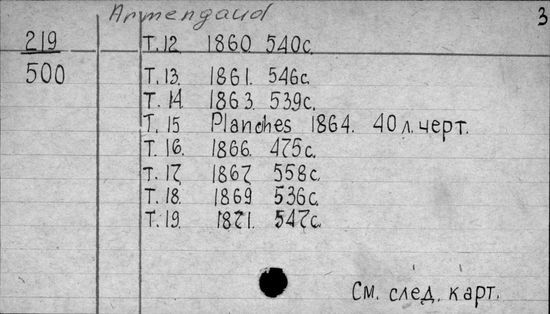 Armengaud
3
219
500
Т.12 1860 540с.
Т.13. 1861. 546с.
Т.14. 1863. 539с.
Т.15 Planches 1864. 40 л. черт.
Т.16. 1866. 475с.
Т.17 1867 558с.
Т.18. 1869 536с.
Т.19. 1871. 547с.
См. след. карт.